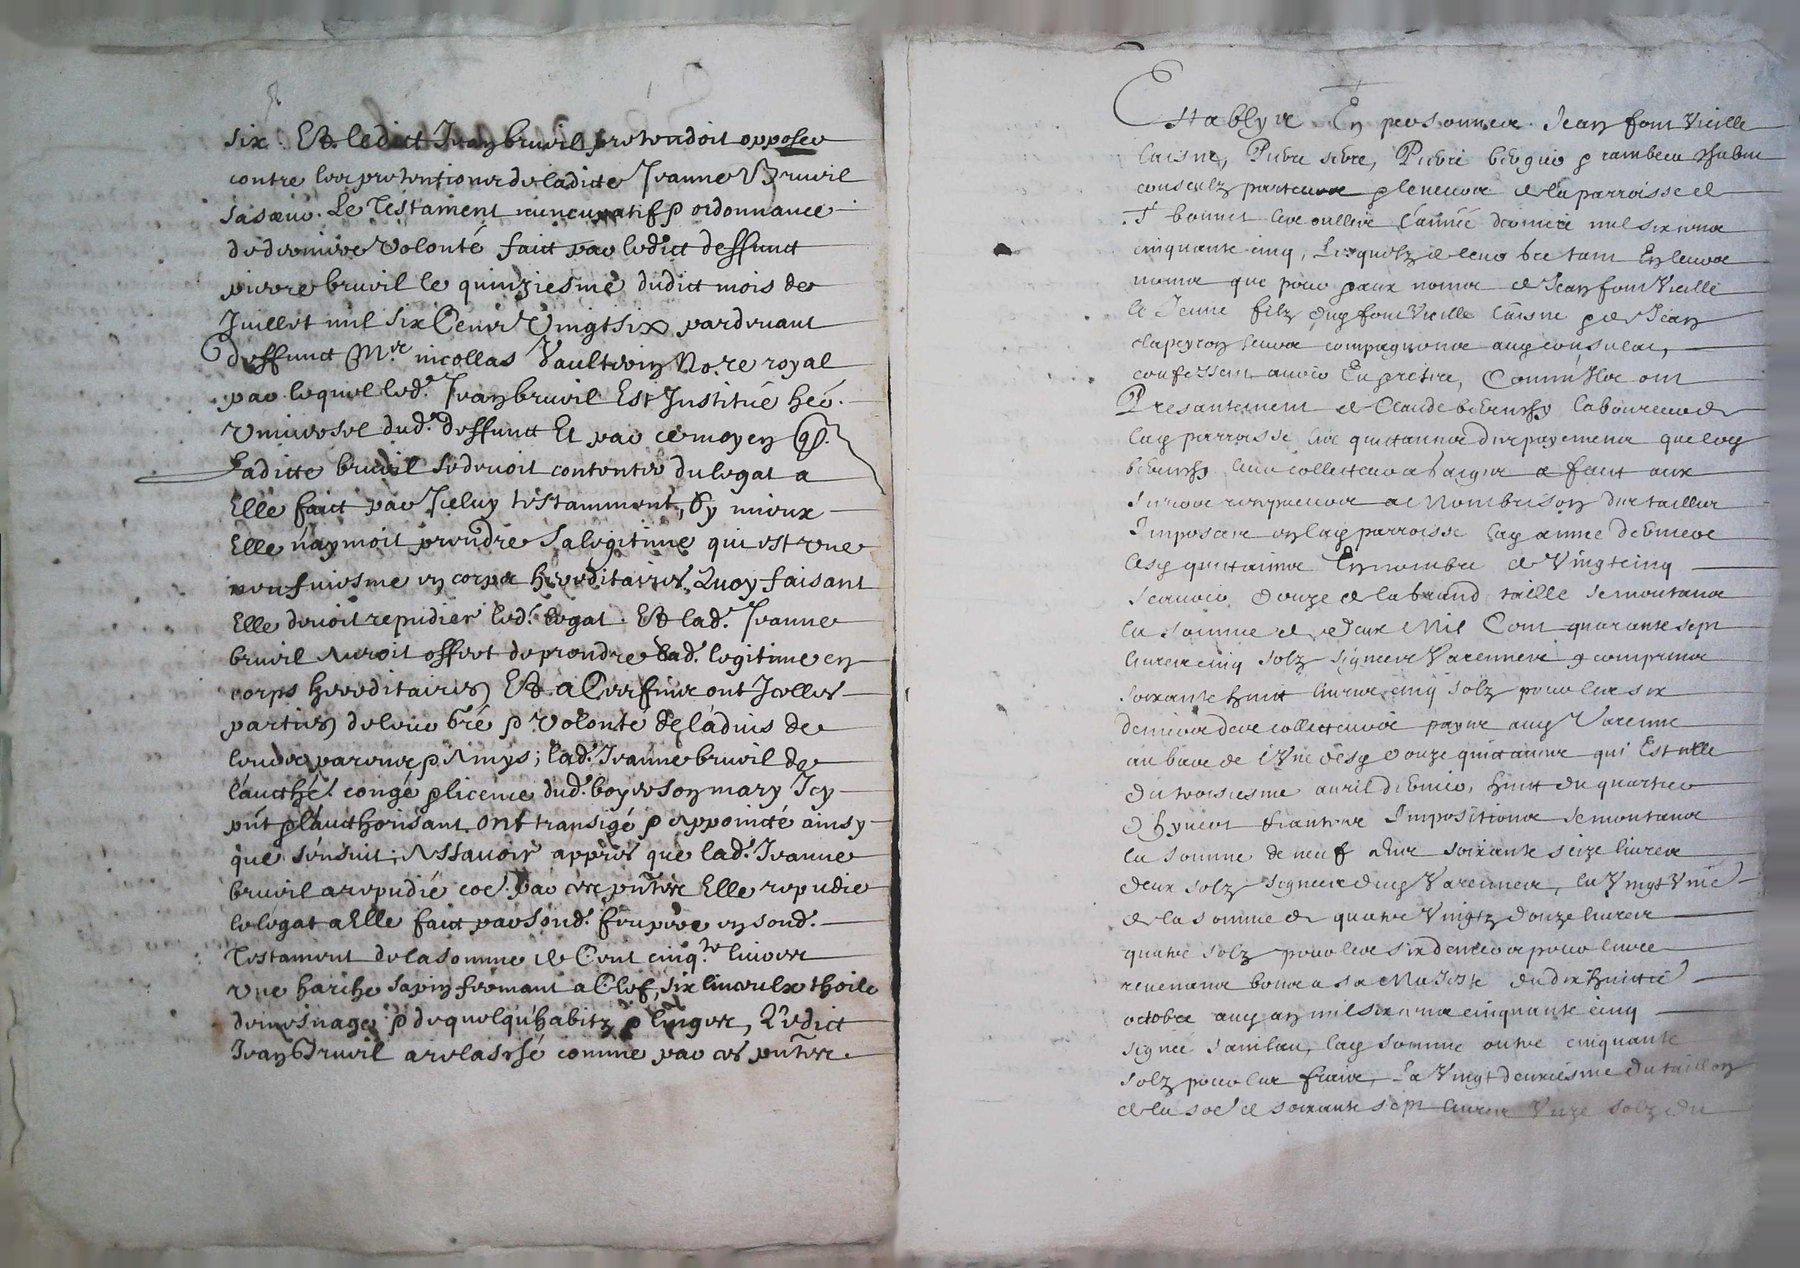 six. Et ledict Jean brueil pretendoit opposer
contre les pretentions de ladicte Jeanne Brueil
sa sœur. Le Testament nuncupatif & ordonnance
de derniere volonté faict par ledict deffunct
pierre brueil le quinziesme dudict mois de
Juillet mil six Cens Vingt six pardevant
deffunct Mre nicollas Vaultrein No.re royal
par lequel led. Jean brueil Est Institué heé.
Universel dud. deffunct Et par ce moyen q.
Ladicte brueil se devoit contenter du legat a
Elle faict par Iceluy testamment, sy mieux
Elle n'aymoit prendre sa legitime qui est une
neufviesme en corps hereditaires. Quoy faisant
Elle devoit repudier led. legat. Et lad. Jeanne
brueil Auroit offert de prendre lad. legitime en
corps hereditaires) Et a Ces fins ont Icelles
parties) de leur bré & volonté de l'advis de
leurs parens & Amys; lad. Jeanne brueil de
l'aucthé. congé & licence dud. boyer son mary Icy
pñt & l'aucthorisant. ont transigé & appoincté ainsy
que s'ensuit; Assavoir appres que lad. Jeanne
brueil a repudié coe. par ces pñtes Elle repudie
le legat a Elle faict par sond. feu pere en sond.
Testament de la somme de Cent cinq.te livres
une harche sapin fermant a Clef, six linceulx thoile
de mesnage & de quelqu'habitz & linges, Ledict
Jean Brueil a relassé comme par ces pñtes.
Establys En personnes Jean font Vieille
laisne, Pierre serre, Pierre & rambeu
consculz parteurs & leveurs de la parroisse de
St bonnet les oulles l'année derniere mil six cens
cinquante cinq, Lesquelz de leur bre tant En leurs
noms que pour & aux noms de Jean font Vieille
le Jeune filz dug font Vieille laisne & de Jean
clapeyron leurs compagnons aug consulat,
confessent avoir Eu & retire, Comm'Ilz ont
Presantement de Claude laboureur de
lag parroisse les quittances des payemens que log
leur collecteur a faict aux
sieurs recepveurs de Montbrison des tailles
Imposees en lag parroisse lag année derniere
lesg quittances En nombre de Vingt cinq
scavoir douze de la grand taille se montans
la somme de deux Mil Cent quarante sept
livres cinq solz signees Varennes & comprins
soixante huict livres cinq solz pour les six
deniers des collecteurs payne aug Varenne
au bas de l'Une desg douze quittances qui Est celle
du troisiesme avril dernier, huict du quartier
d'hyvert & autres Impositions se montans
la somme de neuf soixante seize livres
deux solz signees dug Varennes, la Vingt Vnie
de la somme de quatre Vingtz douze livres
quatre solz pour les six deniers pour livre
revenans bons a sa Majesté du dix huictie
octobre aug an mil six cens cinquante cinq
signee lag somme outre cinquante
solz pour les fraix, La Vingt deuxiesme du taillon
de la soe de soixante sept livres Unze solz du